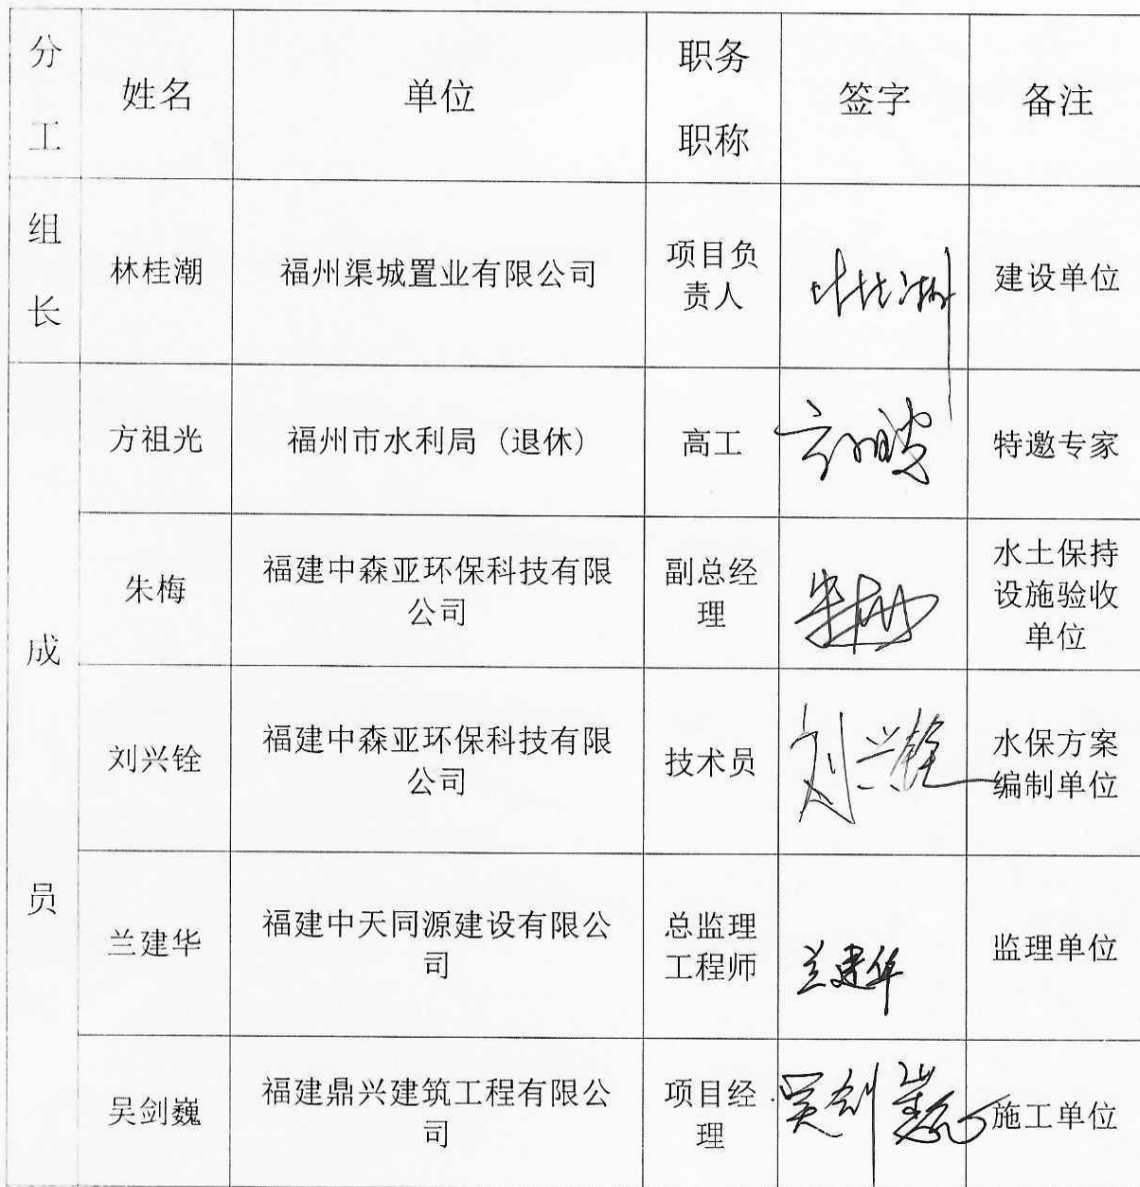 分工
姓名
单位
职务
职称
签字
备注
组长
林桂潮
福州渠城置业有限公司
项目负
责人
林桂潮
建设单位
成员
方祖光
福州市水利局（退休）
高工
方祖光
特邀专家
朱梅
福建中森亚环保科技有限
公司
副总经
理
朱梅
水土保持
设施验收
单位
刘兴铨
福建中森亚环保科技有限
公司
技术员
刘兴铨
水保方案
编制单位
兰建华
福建中天同源建设有限公
司
总监理
工程师
兰建华
监理单位
吴剑巍
福建鼎兴建筑工程有限公
司
项目经
理
吴剑巍
施工单位